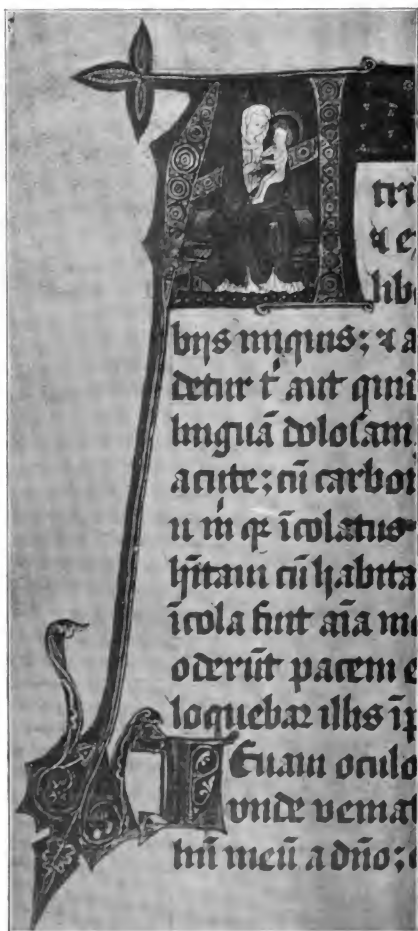 A
tri
⁊ ex
libe
bijs iniquis; ⁊ a
detur t̉ aut quid
linguā dolosam
acute; cū carbon
u m̉ qꝛ īcolatus
hĩtaui cū habita
īcola fuit aīa me
oderūt pacem e
loquebar illis īp
Leuaui oculo
vnde uenia
liū meū a dño;